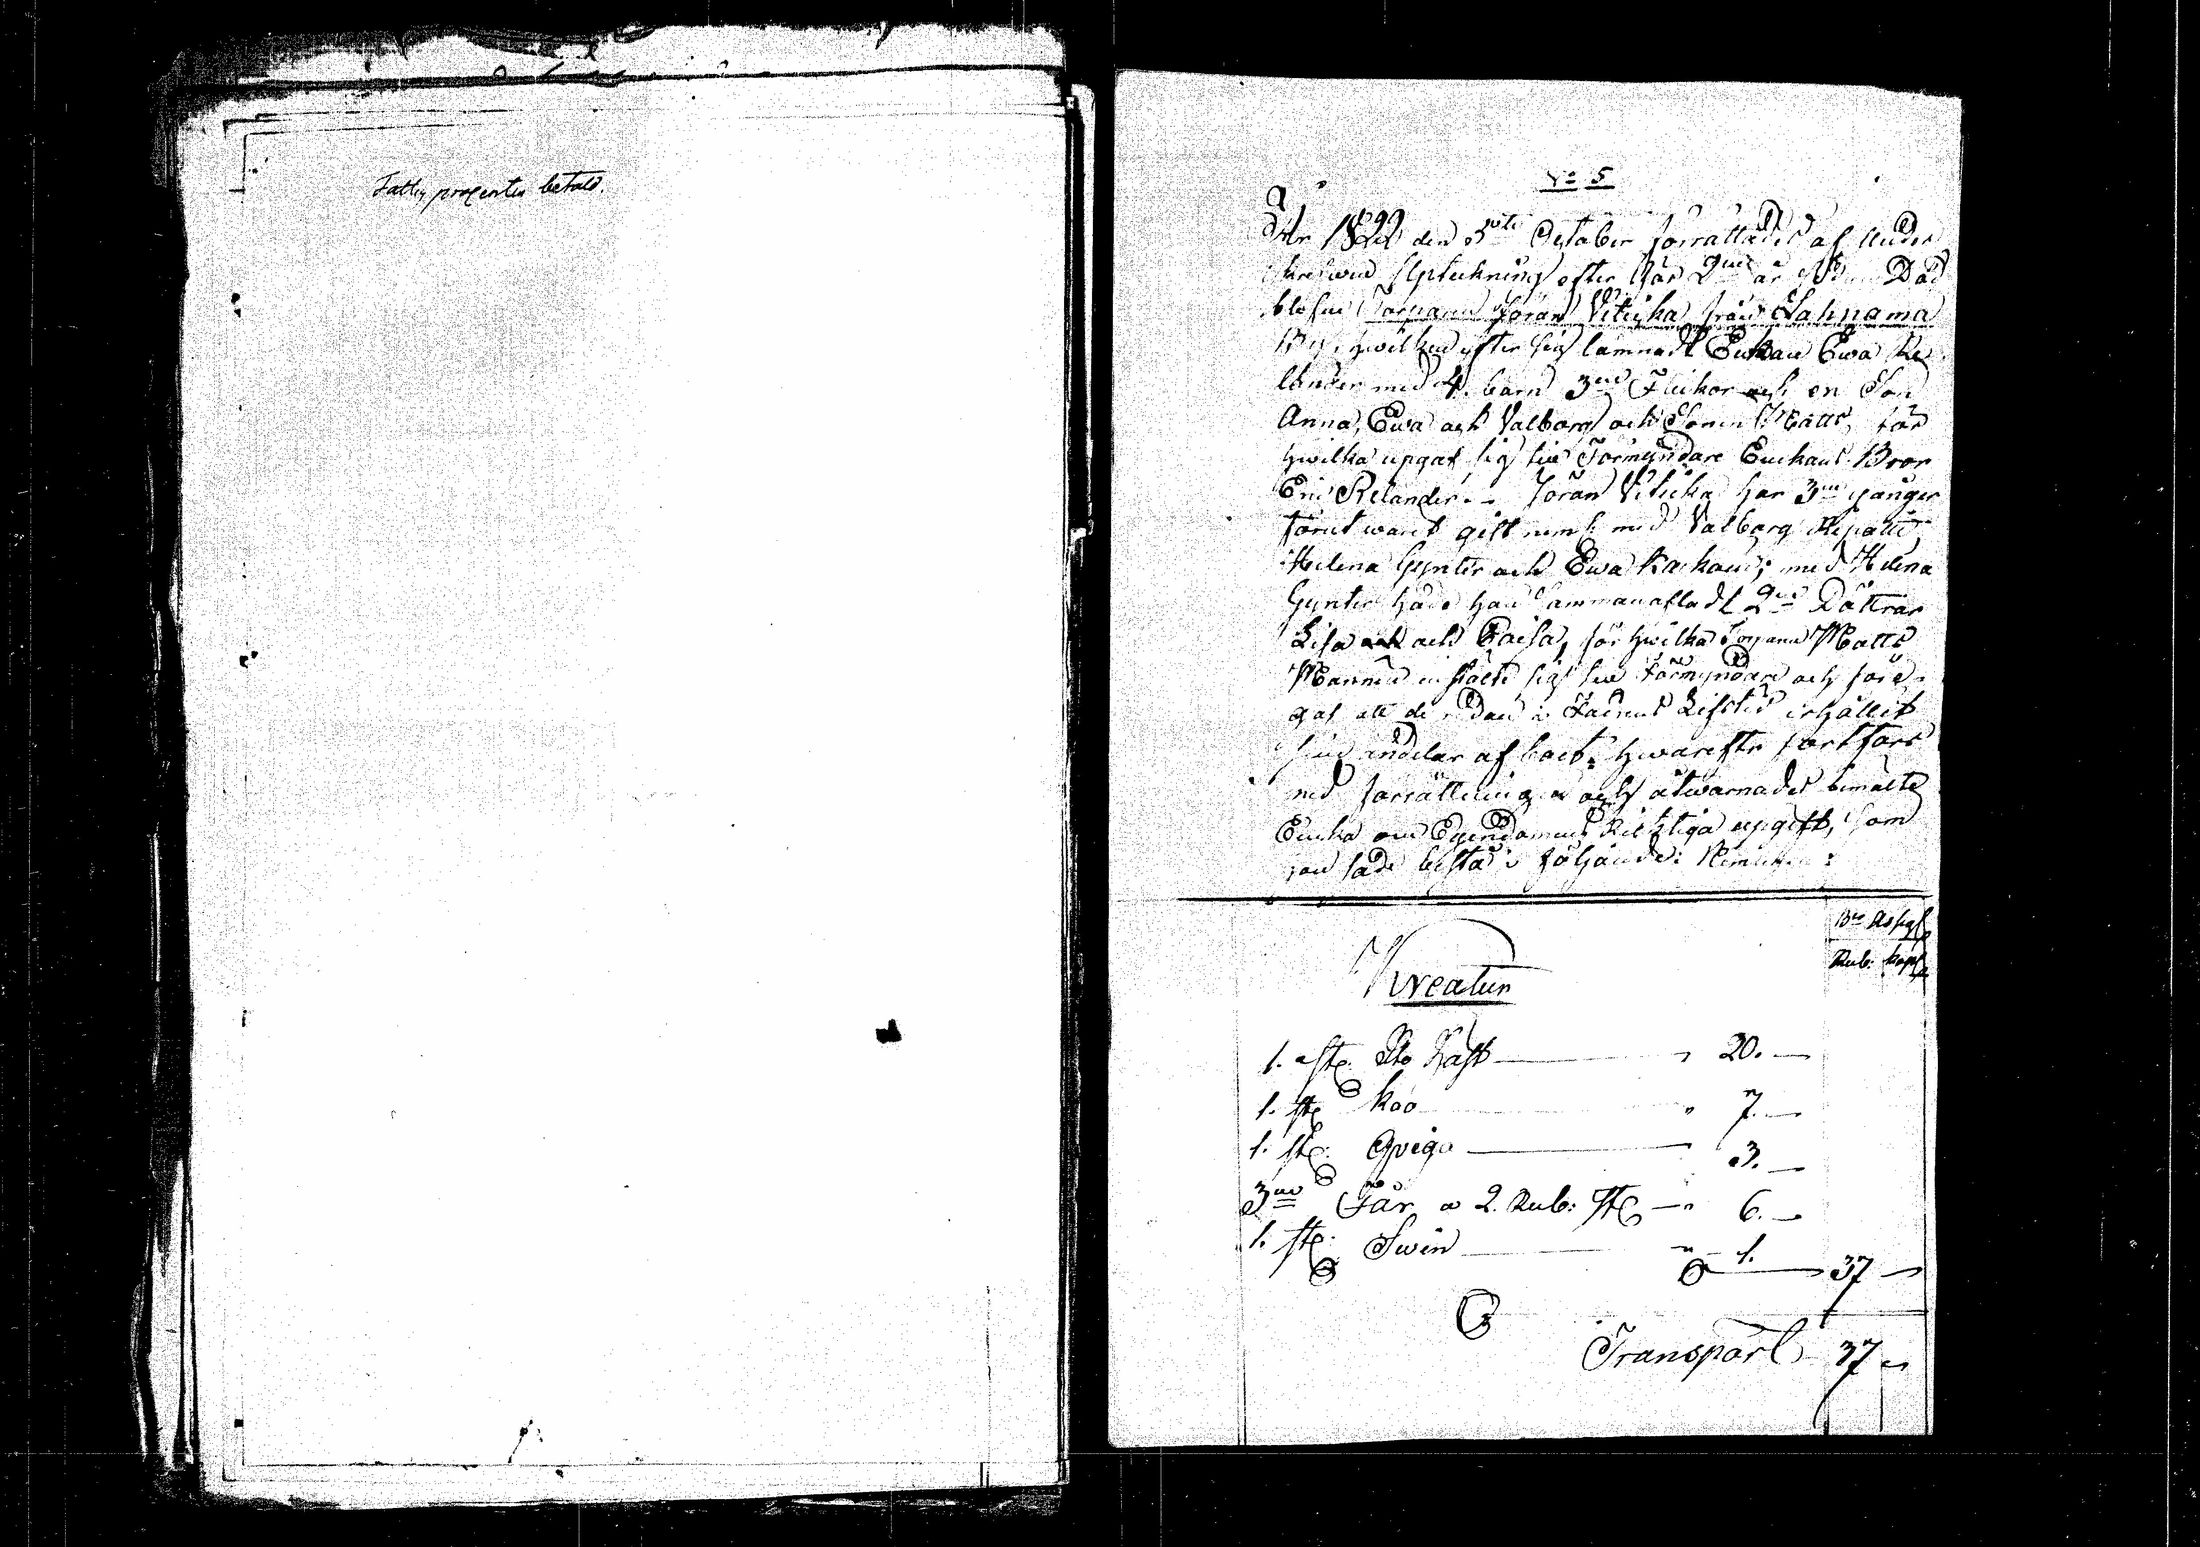 Fattig procenten betald.
No 5
År 1822 den 5te October förrättades af under
skrefven Upteckning efter för 2ne år sedan Död
blefne Torparen Jöran Vitikka från Sahnama
By, hwilken efter sig lämnadt Enkan Ewa Re
lander med 4. barn 3ne Flickor och en Son
Anna, Ewa och Valborg och Sonen Matts, för
hwilka upgaf sig til Förmyndare Enkans Bror
Eric Relander. Jöran Vitikka har 3ne gånger
förut warit gift neml. med Valborg Repatti
Helena Gynter och Ewa Kackaus; med Helena
Gynter hade han sammanafladt 2ne Döttrar
Lisa och Caisa, för hwilka Torparen Matts
Manninen stälte sig til Förmyndare och före-
gaf att de redan i Fadrens Lifstid erhållit
sina andelar af boet; hwarefter fortfors
med förrättningen och åtwarnades bemälte
Enka om Egendomens Ricktiga upgift, som
hon sade bestå i följande: Nemligen:
Bco Assign
Rub: kopk
Kreatur
1. st. Sto Häst — " 20. —
1. st. Koo — " 7. —
1. st. Qviga — 3. —
3ne Får a 2. Rub: st — " 6. —
1. st. Swin — " 1. — 37 —
Transport 37 —